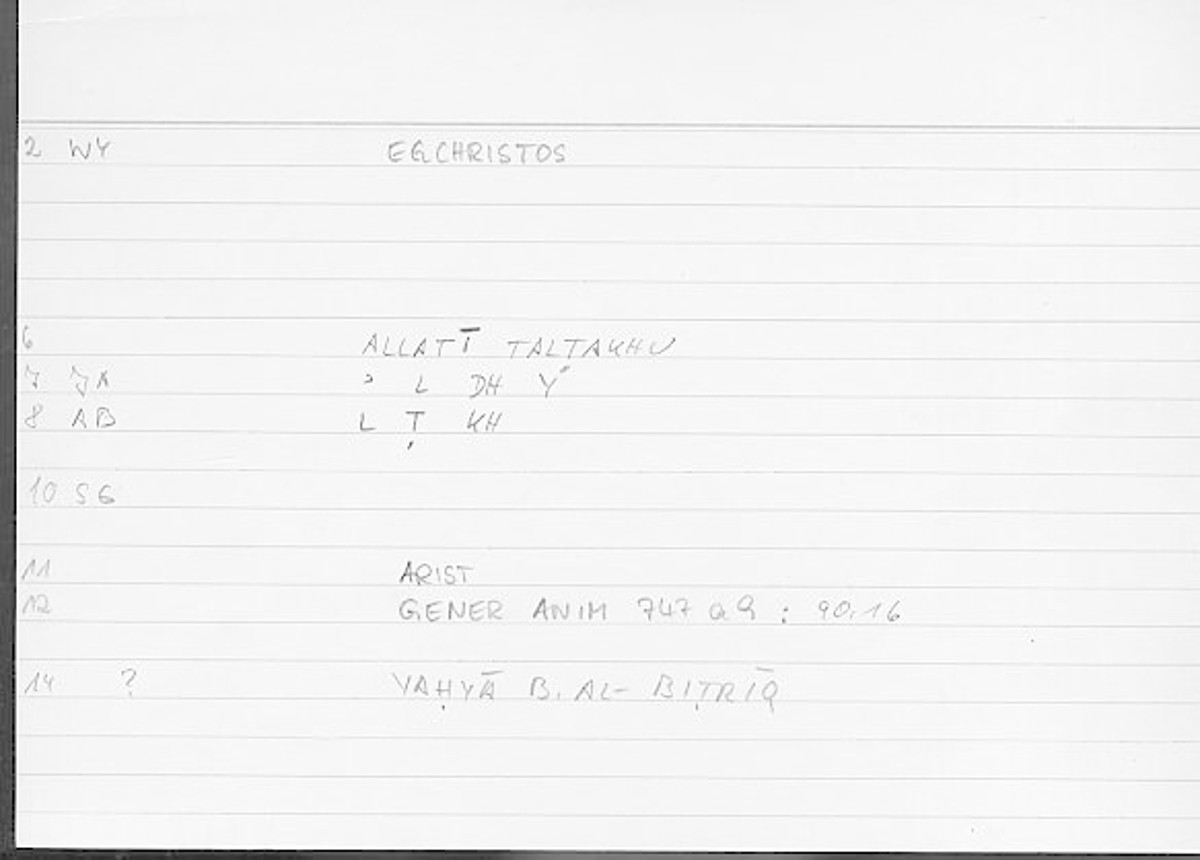 2 WY EGCHRISTOS
6 ALLATĪ TALṬAKHU
7 JK ʾ L DH Y
8 AB L Ṭ KH
10 SG
11 ARIST
12 GENER ANIM 747 a 9 : 90.16
14 ? YAḤYĀ B. AL- BIṬRĪQ